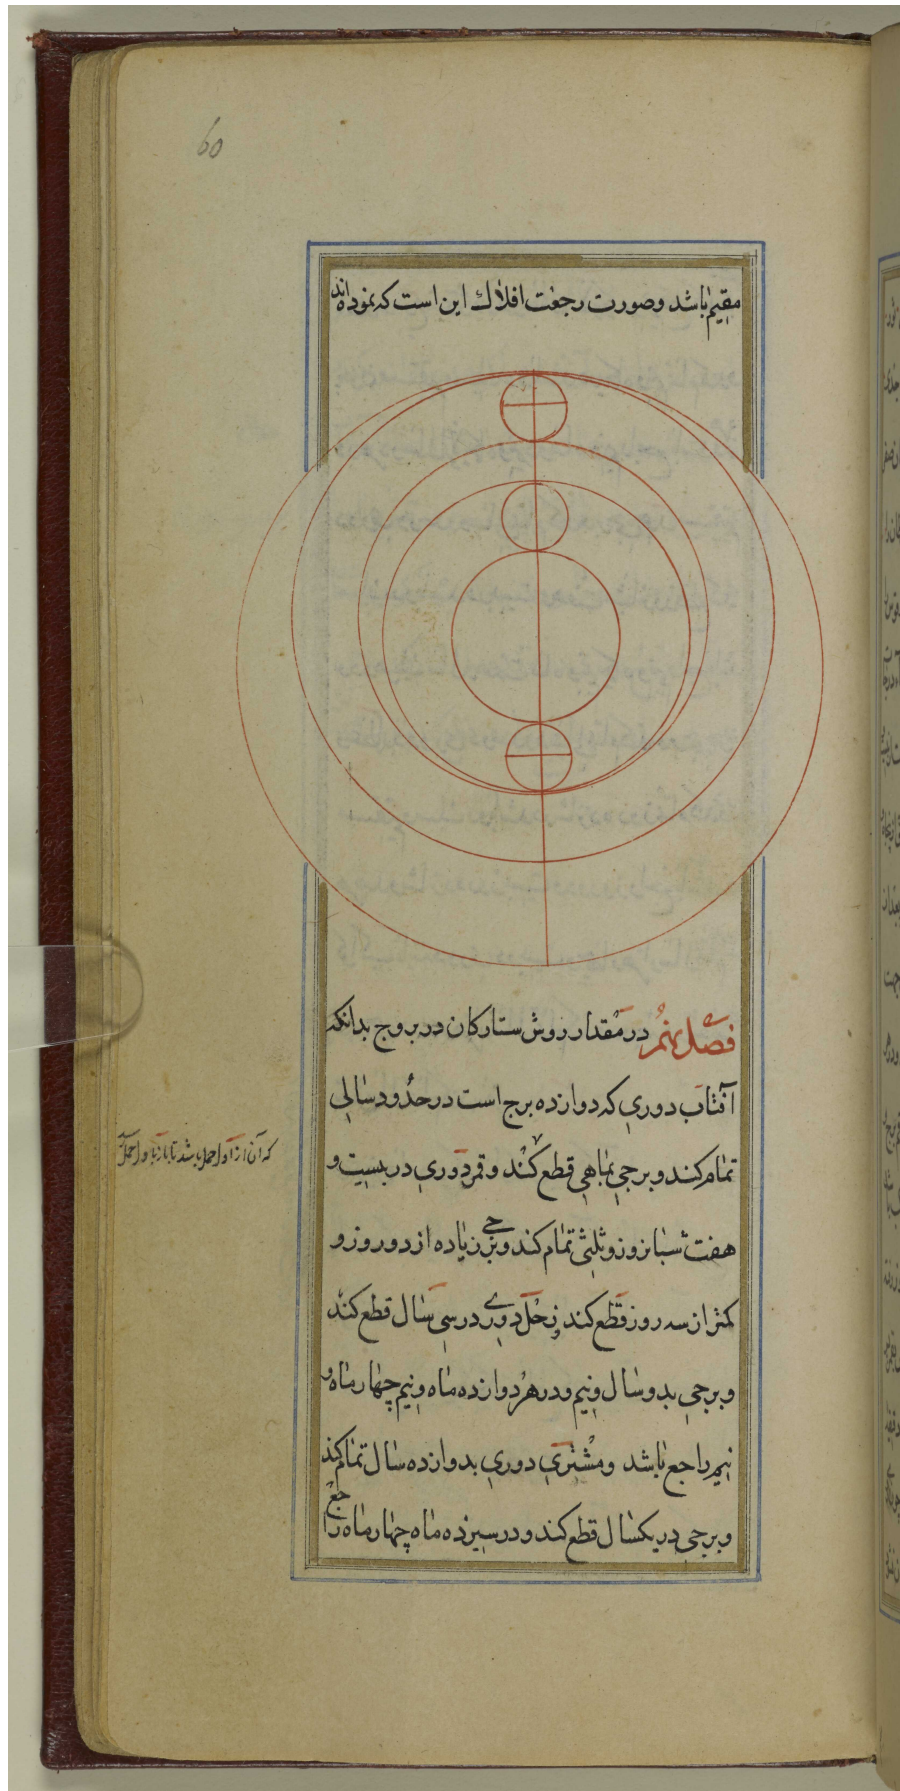 60
مقیم باشد و صورت رجعت افلاك این است که نموده‌اند
فصل نهم در مقدار روش ستارکان در بروج بدانکه
آفتاب دوری که دوازده برج است در حدود سالی
تمام کند و برجی بماهی قطع کند و قمر دوری در بیست و
که آن از اول حمل باشد تا باز باول حمل
هفت شبانروز و ثلثی تمام کند و برجی زیاده از دو روز و
کمتر از سه روز قطع کند و زحل دوری در سی سال قطع کند
و برجی بدو سال و نیم و در هر دوازده ماه و نیم چهار ماه و
نیم راجع باشد و مشتری دوری بدوازده سال تمام کند
و برجی در یکسال قطع کند و در سیزده ماه چهار ماه راجع